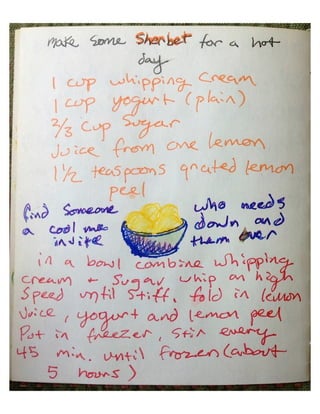 make some Sherbet for a hot
day
1 cup whipping cream
1 cup yogurt (plain)
2/3 cup sugar
Juice from one lemon
1 1/2 teaspoons grated lemon
peel
find someone who needs
a cool me down and
invite them over
in a bowl combine whipping
cream + sugar whip on high
speed until stiff. fold in lemon
juice, yogurt and lemon peel
Put in freezer, stir every
45 min. until frozen (about
5 hours)